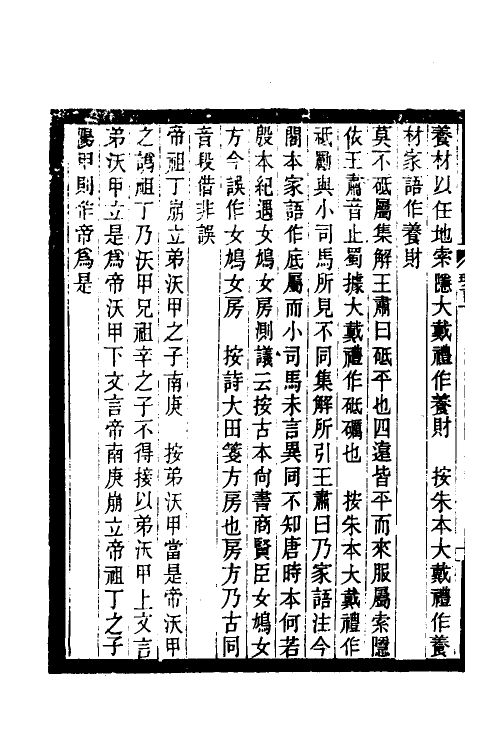 養材以任地索隱大戴禮作養財　按朱本大戴禮作養
材家語作養財
莫不砥屬集解王肅曰砥平也四遠皆平而來服屬索隱
依王肅音止蜀據大戴禮作砥礪也　按朱本大戴禮作
砥勵與小司馬所見不同集解所引王肅曰乃家語注今
閣本家語作底屬而小司馬未言異同不知唐時本何若
殷本紀遇女鳩女房測議云按古本尙書商賢臣女鳩女
方今誤作女鳩女房　按詩大田箋方房也房方乃古同
音叚借非誤
帝祖丁崩立弟沃甲之子南庚　按弟沃甲當是帝沃甲
之譌祖丁乃沃甲兄祖辛之子不得接以弟沃甲上文言
弟沃甲立是爲帝沃甲下文言帝南庚崩立帝祖丁之子
陽甲則作帝爲是